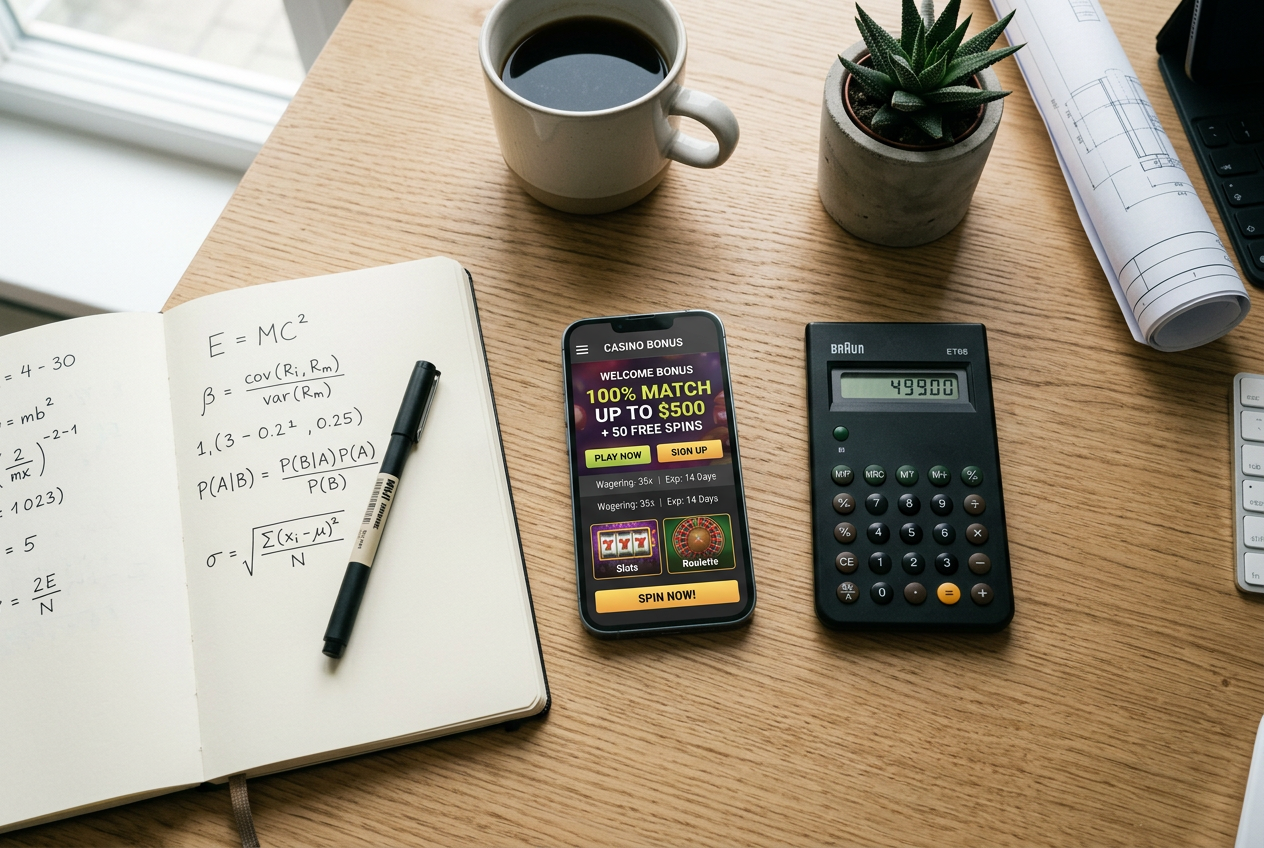 = 4 - 30
= mb²
(2/mx)^-2-1
1023)
= 5
= 2E/N
E = MC²
β = cov(Ri, Rm)/var(Rm)
1,(3 - 0.2¹ , 0.25)
P(A|B) = P(B|A)P(A)/P(B)
σ = √(Σ(xᵢ - μ)²/N)
CASINO BONUS
WELCOME BONUS
100% MATCH
UP TO $500
+ 50 FREE SPINS
PLAY NOW SIGN UP
Wagering: 35x | Exp: 14 Daye
Wagering: 35x | Exp: 14 Days
7 7 7
Slots Roulette
SPIN NOW!
BRAUN ET66
49900
MRC M+ %
% 7 8 9 ÷
% 4 5 6 ×
CE 1 2 3 −
0 . = +